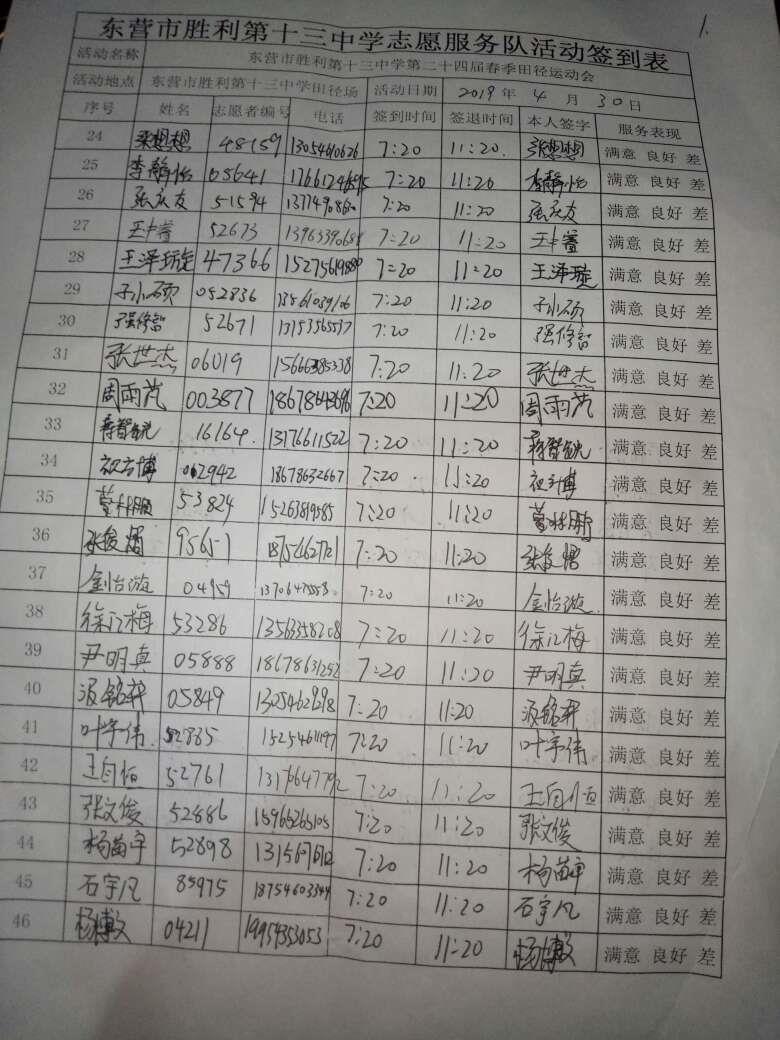 1.
东营市胜利第十三中学志愿服务队活动签到表
活动名称 东营市胜利第十三中学第二十四届春季田径运动会
活动地点 东营市胜利第十三中学田径场 活动日期 2019 年 4 月 30 日
序号 姓名 志愿者编号 电话 签到时间 签退时间 本人签字 服务表现
24 48159 13054610626 7:20 11:20 满意 良好 差
25 李静怡 05641 7:20 11:20 李静怡 满意 良好 差
26 张庆友 51594 7:20 11:20 张庆友 满意 良好 差
27 52673 7:20 11:20 满意 良好 差
28 王泽璇 47366 7:20 11:20 王泽璇 满意 良好 差
29 于小硕 052836 7:20 11:20 于小硕 满意 良好 差
30 张修智 52671 13153565597 7:20 11:20 张修智 满意 良好 差
31 张世杰 06019 15666385338 7:20 11:20 张世杰 满意 良好 差
32 周雨芃 003877 7:20 11:20 周雨芃 满意 良好 差
33 蒋智锐 16164 13176611522 7:20 11:20 蒋智锐 满意 良好 差
34 062942 18678632667 7:20 11:20 满意 良好 差
35 53824 15263819585 7:20 11:20 满意 良好 差
36 95651 7:20 11:20 满意 良好 差
37 金怡漩 04959 13706475558 7:20 11:20 金怡漩 满意 良好 差
38 徐江梅 53286 13563358208 7:20 11:20 徐江梅 满意 良好 差
39 尹明真 05888 18678631252 7:20 11:20 尹明真 满意 良好 差
40 05849 13054629298 7:20 11:20 满意 良好 差
41 叶宇伟 52835 15254611197 7:20 11:20 叶宇伟 满意 良好 差
42 王自恒 52761 7:20 11:20 王自恒 满意 良好 差
43 张文俊 52886 15965265105 7:20 11:20 张文俊 满意 良好 差
44 杨苗宇 52898 7:20 11:20 杨苗宇 满意 良好 差
45 石宇凡 85975 18754603344 7:20 11:20 石宇凡 满意 良好 差
46 杨博文 04211 19954353053 7:20 11:20 杨博文 满意 良好 差